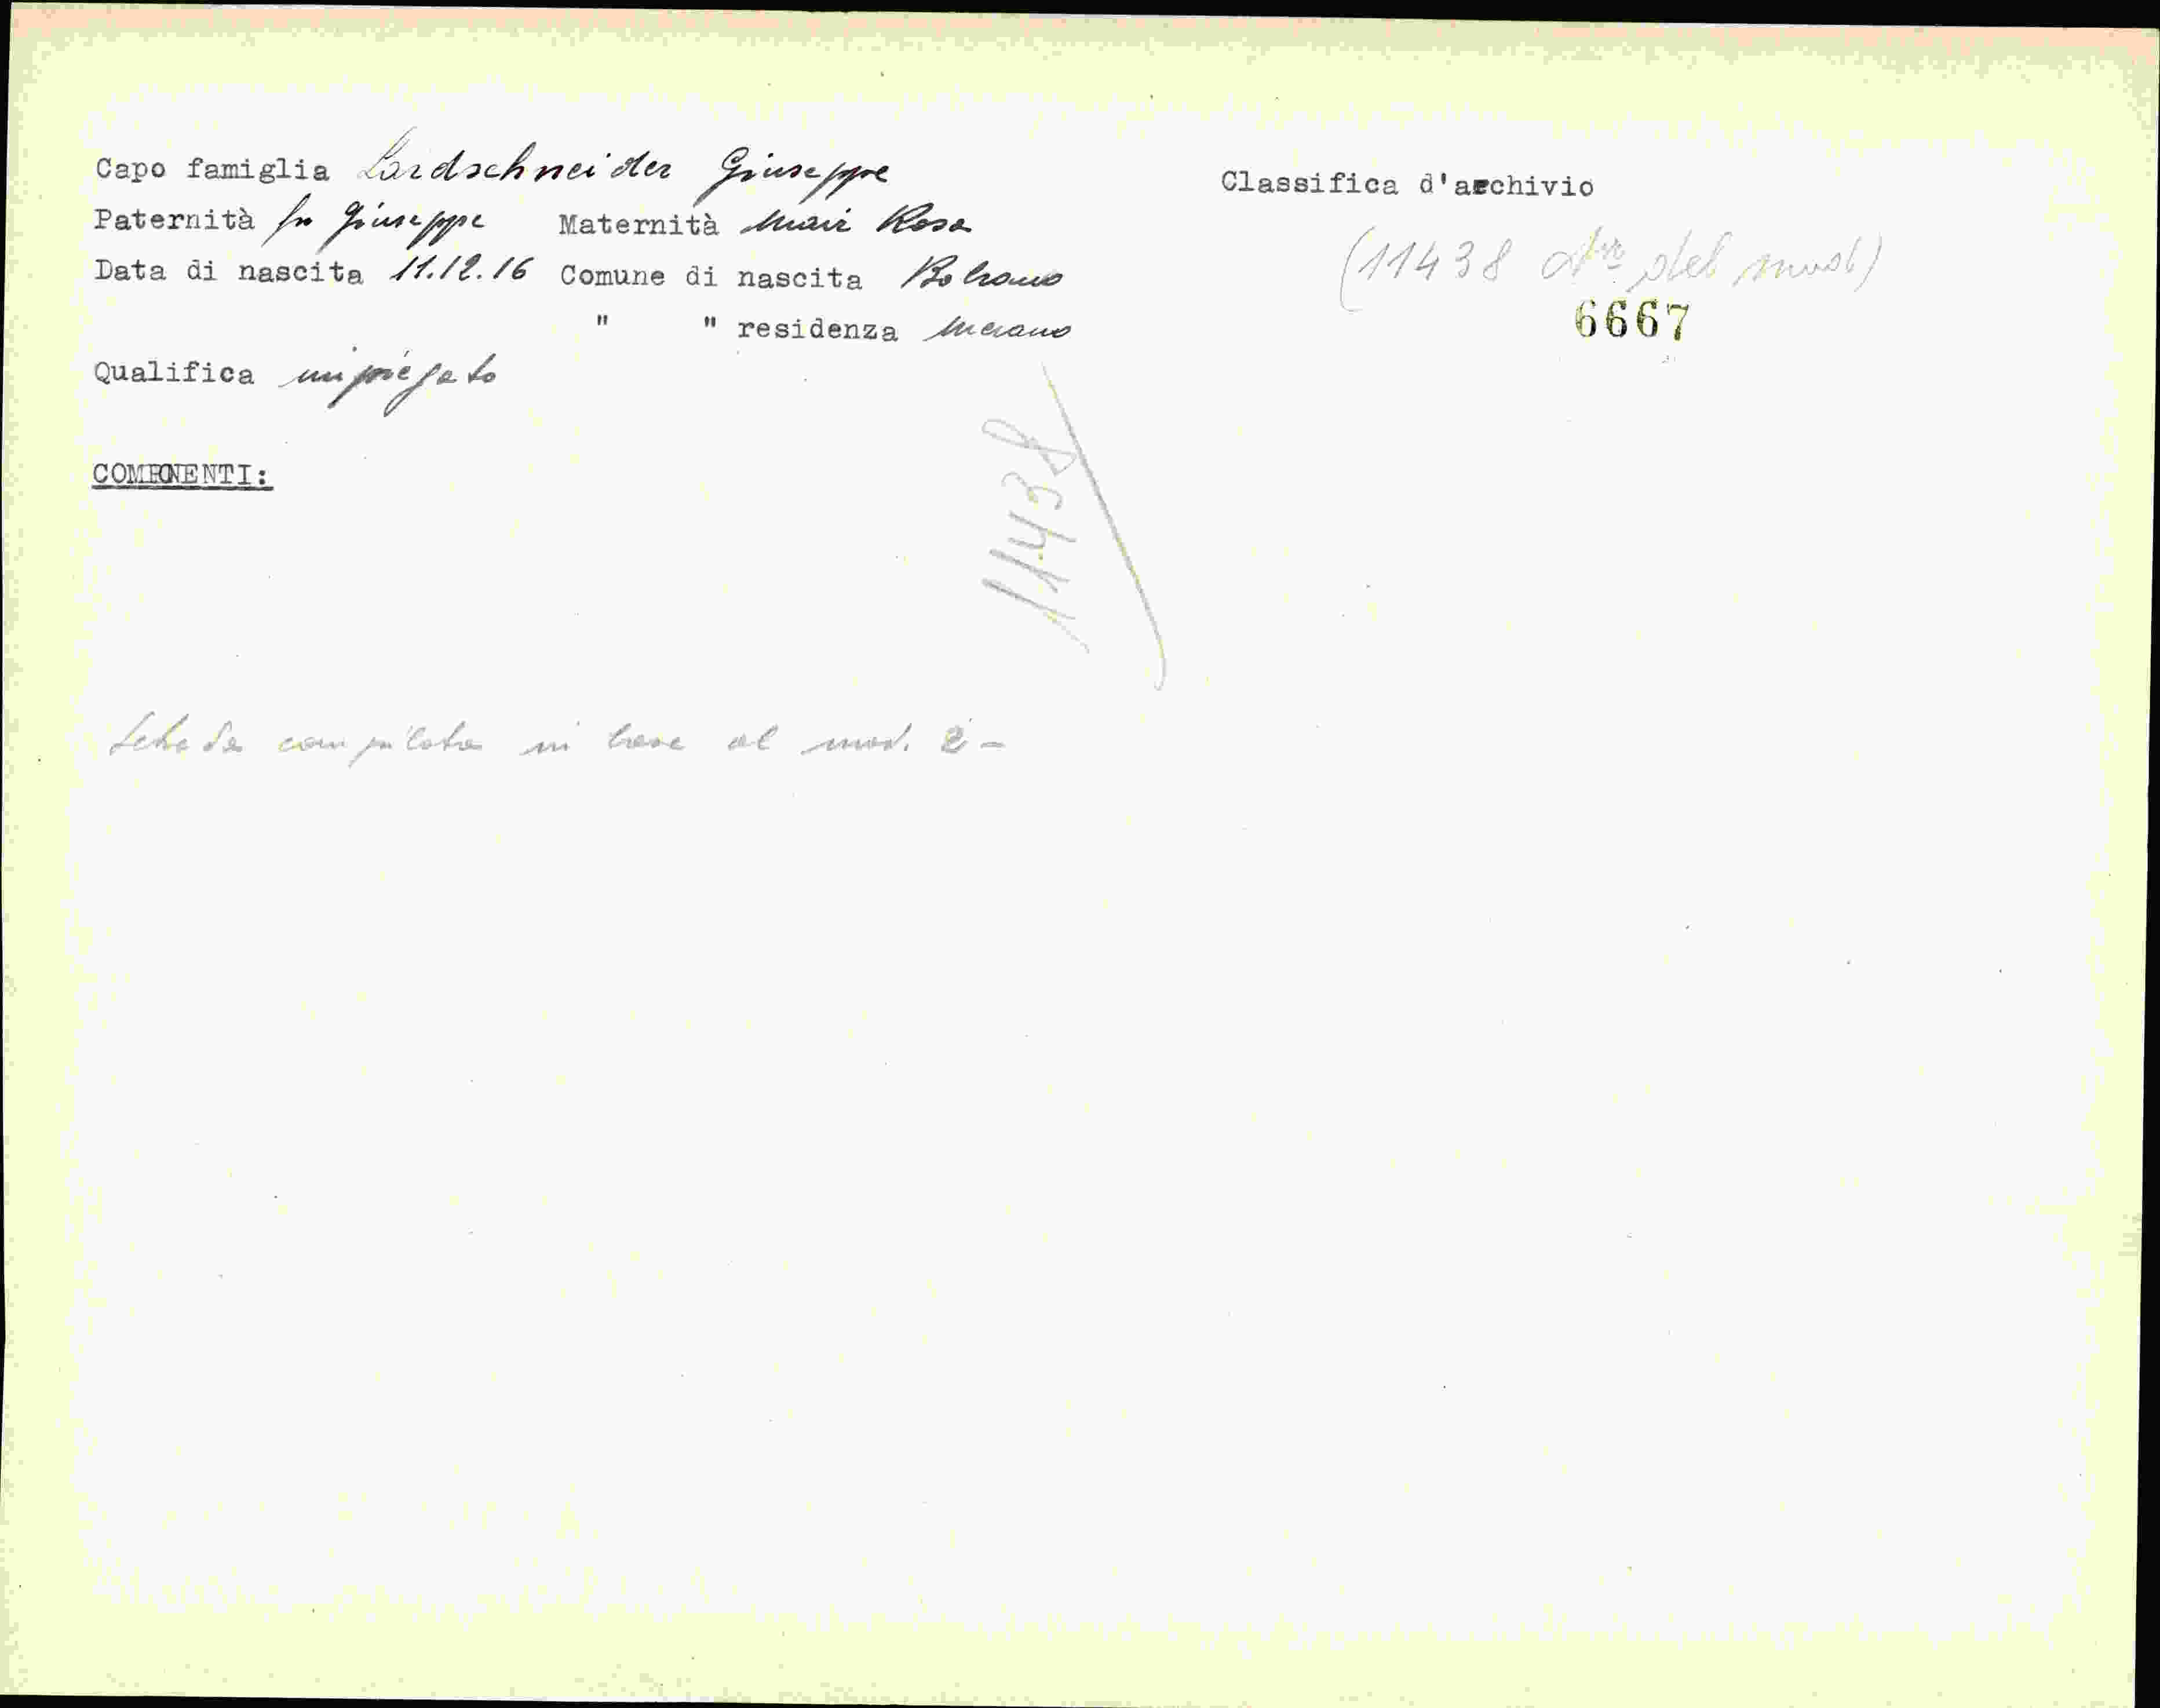 Capo famiglia Lardschneider Giuseppe
Classifica d'archivio
Paternità fu Giuseppe Maternità Mair Rosa
(11438 del mod)
Data di nascita 11.12.16 Comune di nascita Bolzano
6667
" " residenza Merano
Qualifica impiegato
11438
COMPONENTI:
Scheda compilata in base al mod. 2 -